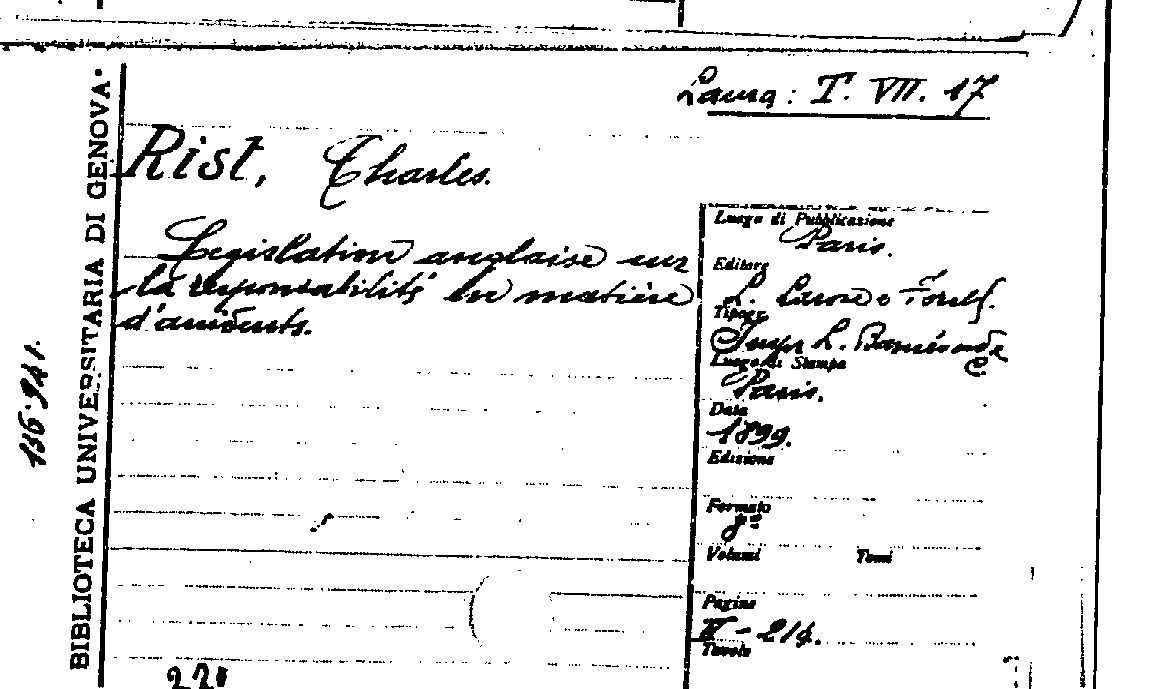 Laura: T. VII. 17
Rist, Charles.
Législation anglaise sur
la responsabilité en matière
d'accidents.
Luogo di Pubblicazione
Paris.
Editore
L. Larose e Forcel.
Tipogr.
Impr. L.
Luogo di Stampa
Paris.
Data
1899.
Edizione
Formato
8º
Volumi Tomi
Pagine
II - 214.
Tavole
BIBLIOTECA UNIVERSITARIA DI GENOVA.
136.941.